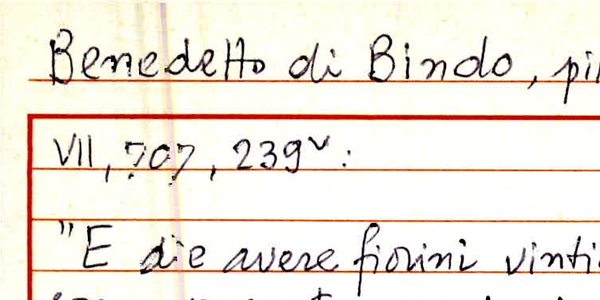 Benedetto di Bindo, pi
VII, 707, 239v:
"E die avere fiorini vinti